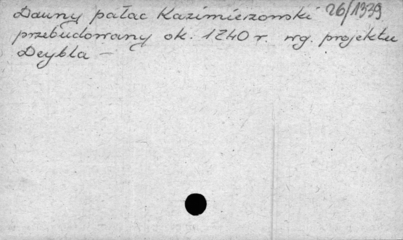 Dawny pałac Kazimierzowski 26/1939
przebudowany ok. 1740 r. wg. projektu
Deybla —